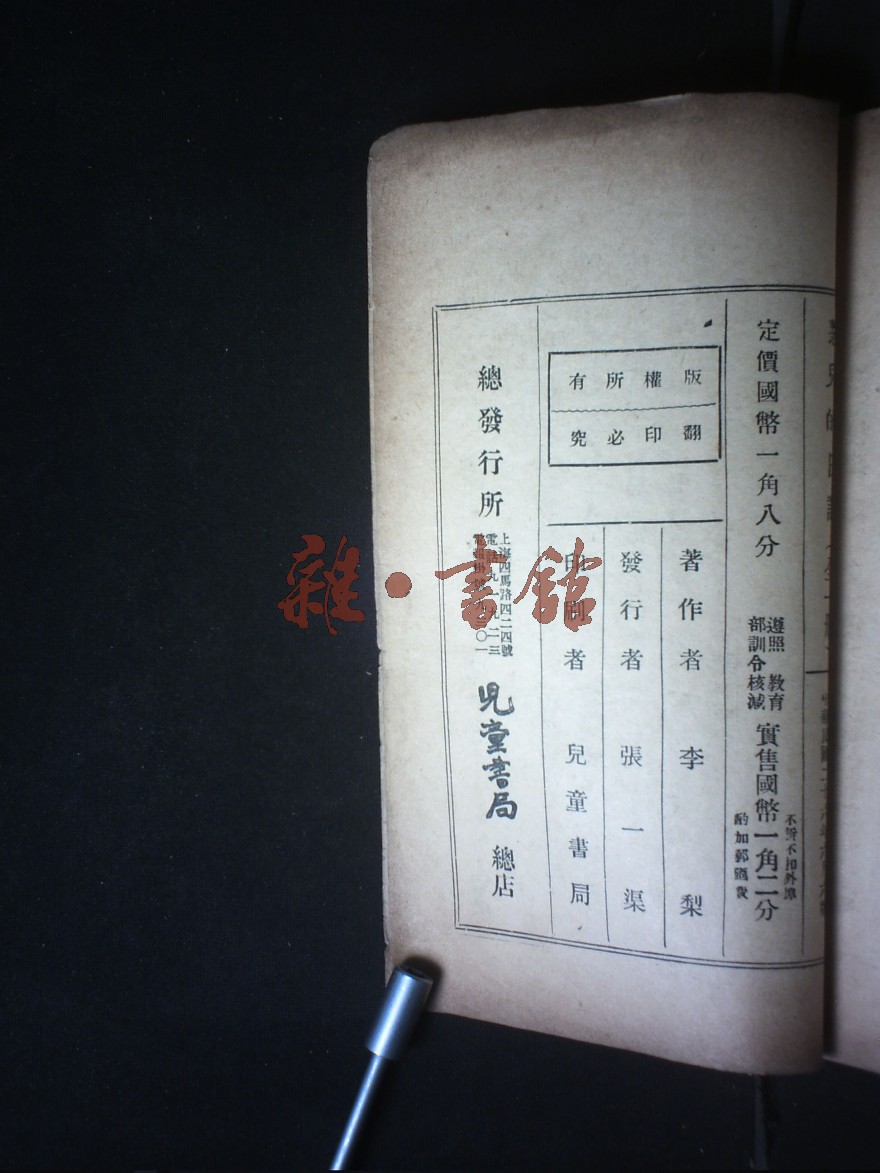 定價國幣一角八分
遵照教育
部訓令核減
實售國幣一角二分
不折不扣外埠
酌加郵匯費
版權所有
翻印必究
著作者 李梨
發行者 張一渠
印刷者 兒童書局
總發行所
上海四馬路四二四號
兒童書局
總店
雜·書館